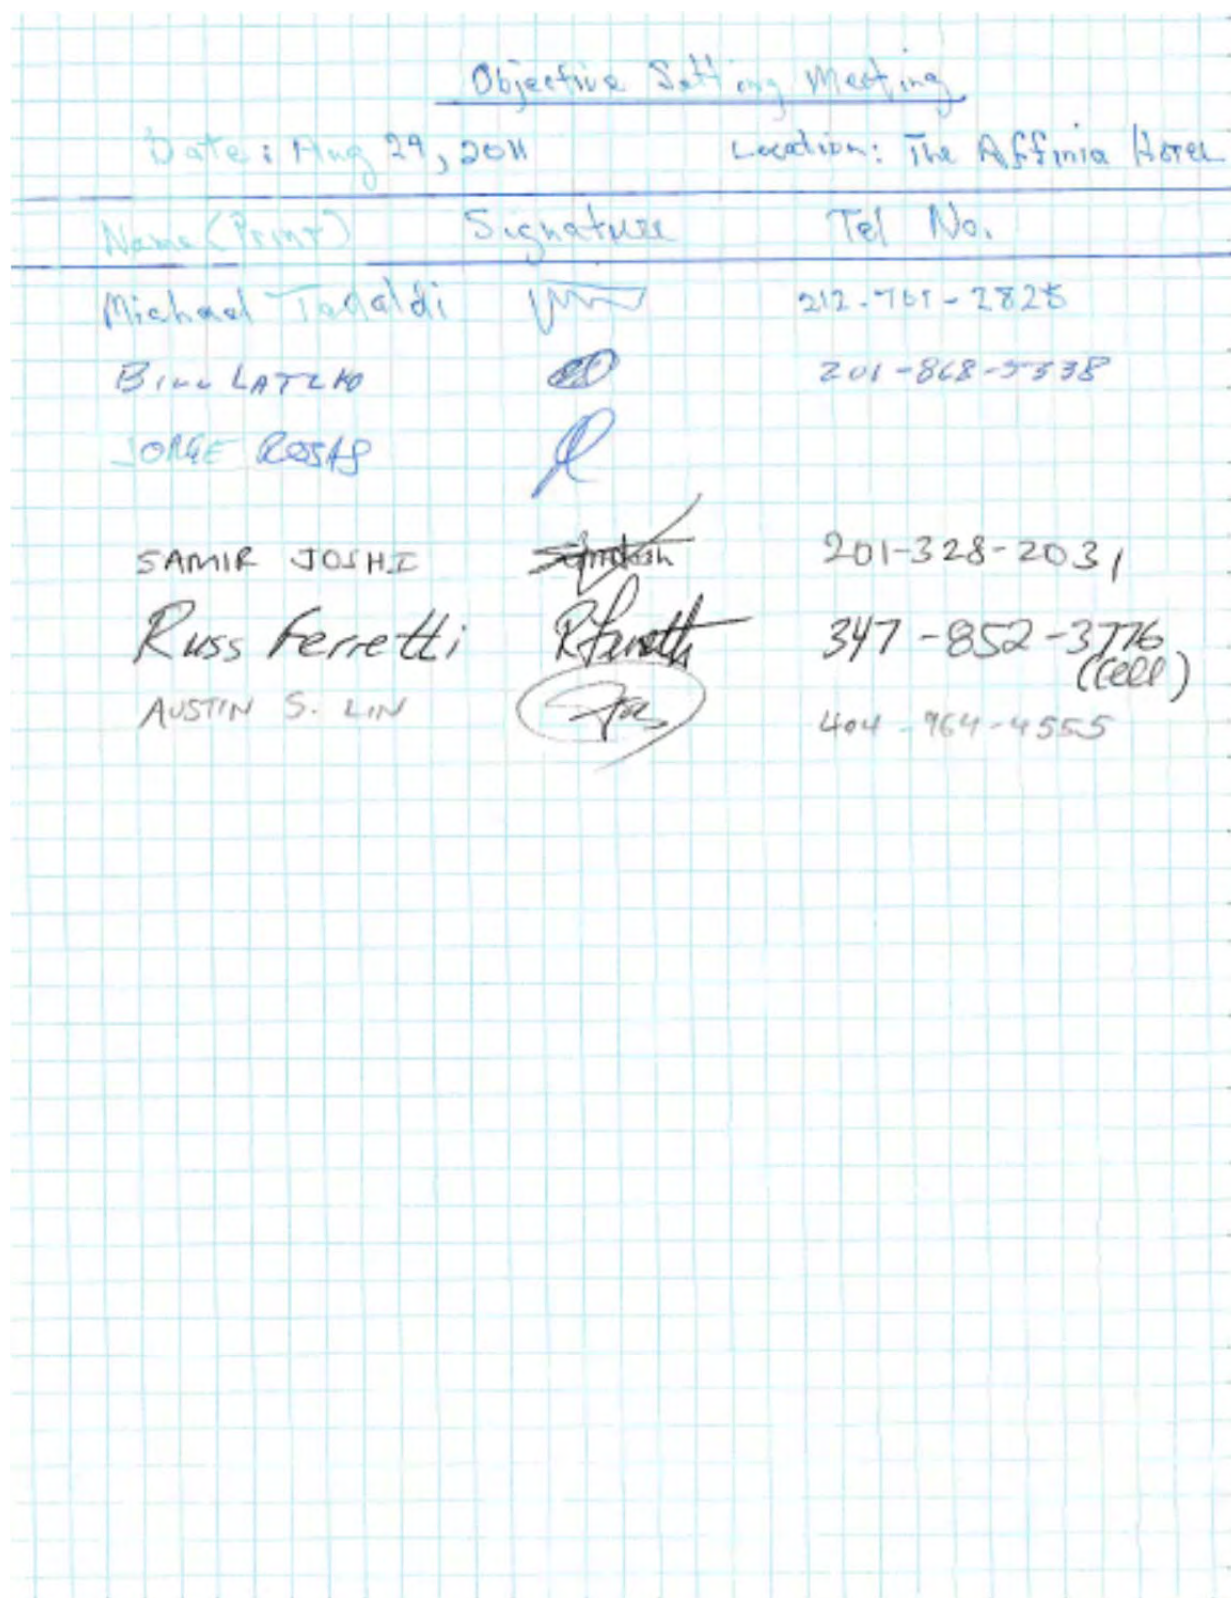 Objective Setting Meeting
Date: Aug 29, 2011 Location: The Affinia Hotel
Name (Print) Signature Tel No.
Michael 212-
BILL LATZKO 201-868-5338
JORGE ROSAS
SAMIR JOSHI 201-328-2031
Russ Ferretti RFerretti 347-852-3776
(cell)
AUSTIN S. LIN 404-964-4555